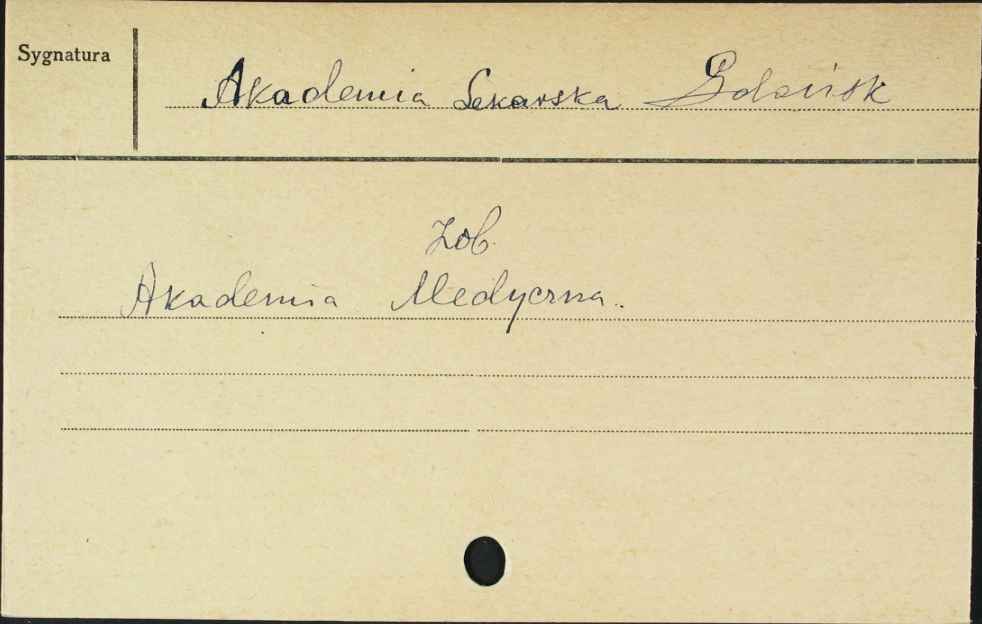 Sygnatura
Akademia Lekarska Gdańsk
Zob.
Akademia Medyczna.